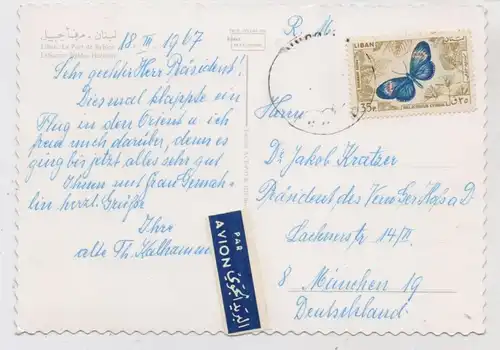 لبنان - مرفأ جبيل
Liban, Le Port de Byblos
18. III 1967
Sehr geehrter Herr Präsident!
Diesmal klappte ein
Flug in den Orient u. ich
freu mich darüber, denn es
ging bis jetzt alles sehr gut
Ihnen und Frau Gemah-
lin herzl. Grüße
Ihre
alte Th.
R. M.
LIBAN
35P
لبنان
Herrn
Dr Jakob Kratzer
Präsident des
14/II
8 München 19
Deutschland
PAR
AVION
البريد الجوي